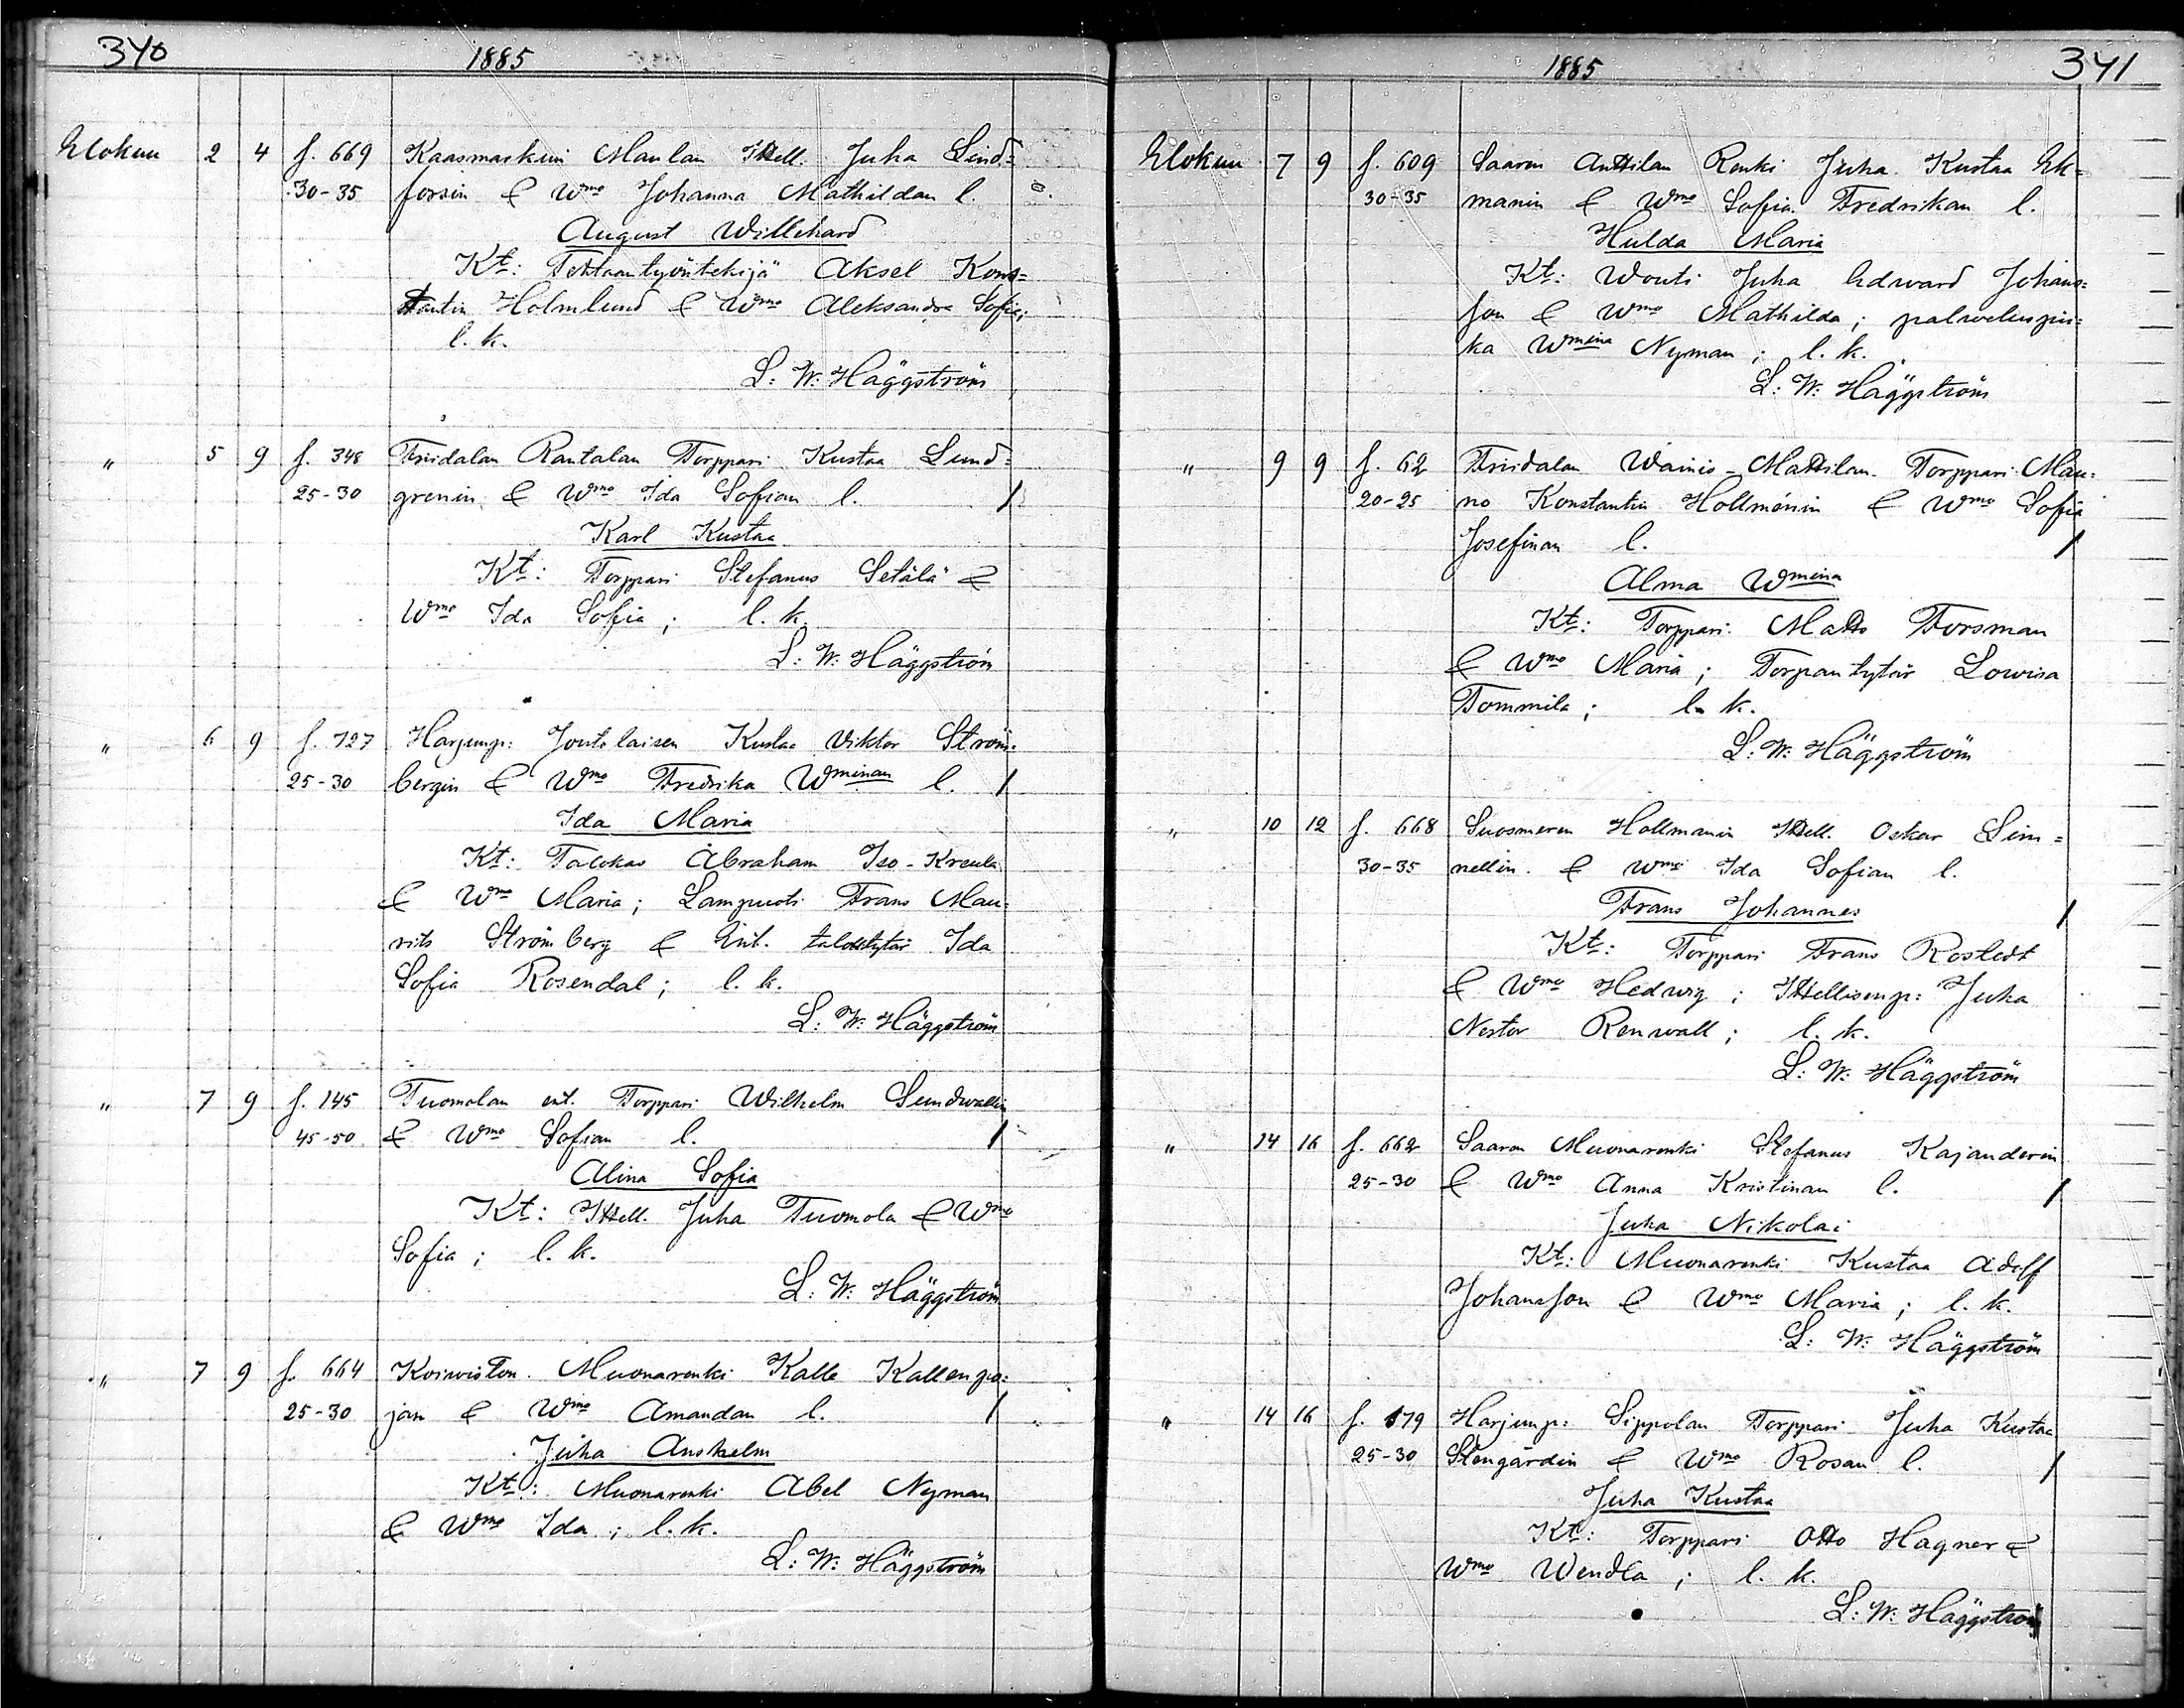 340
1885
Elokuu 2 4 f. 669 Kaasmarkun Maulan Itsell. Juha Lind=
30-35 forsin & Wmo Johanna Mathildan l.
August Willehard
Kt: Tehtaantyöntekijä Aksel Kons=
tantin Holmlund & Wmo Aleksandra Sofia;
l. k.
L: W: Häggström
" 5 9 f. 348 Friidalan Rantalan Torppari Kustaa Lund=
25-30 grenin & Wmo Ida Sofian l. /
Karl Kustaa
Kt: Torppari Stefanus Setälä &
Wmo Ida Sofia; l. k.
L: W: Häggström
" 6 9 f. 727 Harjunp: Joutilaisen Kustaa Viktor Ström=
25-30 bergin & Wmo Fredrika Wminan l. /
Ida Maria
Kt: Talokas Abraham Iso-Kreula
& Wmo Maria; Lampuoti Frans Mau=
rits Strömberg & Ent. talontytär Ida
Sofia Rosendal; l. k.
L: W: Häggström
" 7 9 f. 145 Tuomolan ent. Torppari Wilhelm Sundwallin
45-50 & Wmo Sofian l. /
Alina Sofia
Kt: Itsell. Juha Tuomola & Wmo
Sofia; l. k.
L: W: Häggström
" 7 9 f. 664 Koiwiston Muonarenki Kalle Kallenpo=
25-30 jan & Wmo Amandan l. /
Juha Anshelm
Kt: Muonarenki Abel Nyman
& Wmo Ida; l. k.
L: W: Häggström
1885
341
Elokuu 7 9 f. 609 Saaren Anttilan Renki Juha Kustaa Ek=
30-35 manin & Wmo Sofia Fredrikan l.
Hulda Maria
Kt: Wouti Juha Edward Johans=
son & Wmo Mathilda; palweluspii=
ka Wmina Nyman; l. k.
L: W: Häggström
" 9 9 f. 62 Friidalan Wainio-Mattilan Torppari Mau=
20-25 no Konstantin Hollménin & Wmo Sofia
Josefinan l. /
Alma Wmina
Kt: Torppari Matts Forsman
& Wmo Maria; Torpantytär Lowisa
Tommila; l. k.
L: W: Häggström
" 10 12 f. 668 Suosmeren Hollmanin Itsell. Oskar Lin=
30-35 nellin & Wmo Ida Sofian l.
Frans Johannes /
Kt: Torppari Frans Rostedt
& Wmo Hedwig; Itsellisenp: Juha
Nestor Renwall; l. k.
L: W: Häggström
" 14 16 f. 662 Saaren Muonarenki Stefanus Kajanderin
25-30 & Wmo Anna Kristinan l. /
Juha Nikolai
Kt: Muonarenki Kustaa Adolf
Johansson & Wmo Maria; l. k.
L: W: Häggström
" 14 16 f. 179 Harjunp: Sippolan Torppari Juha Kustaa
25-30 Stengårdin & Wmo Rosan l. /
Juha Kustaa
Kt: Torppari Otto Hagner &
Wmo Wendla; l. k.
L: W: Häggström